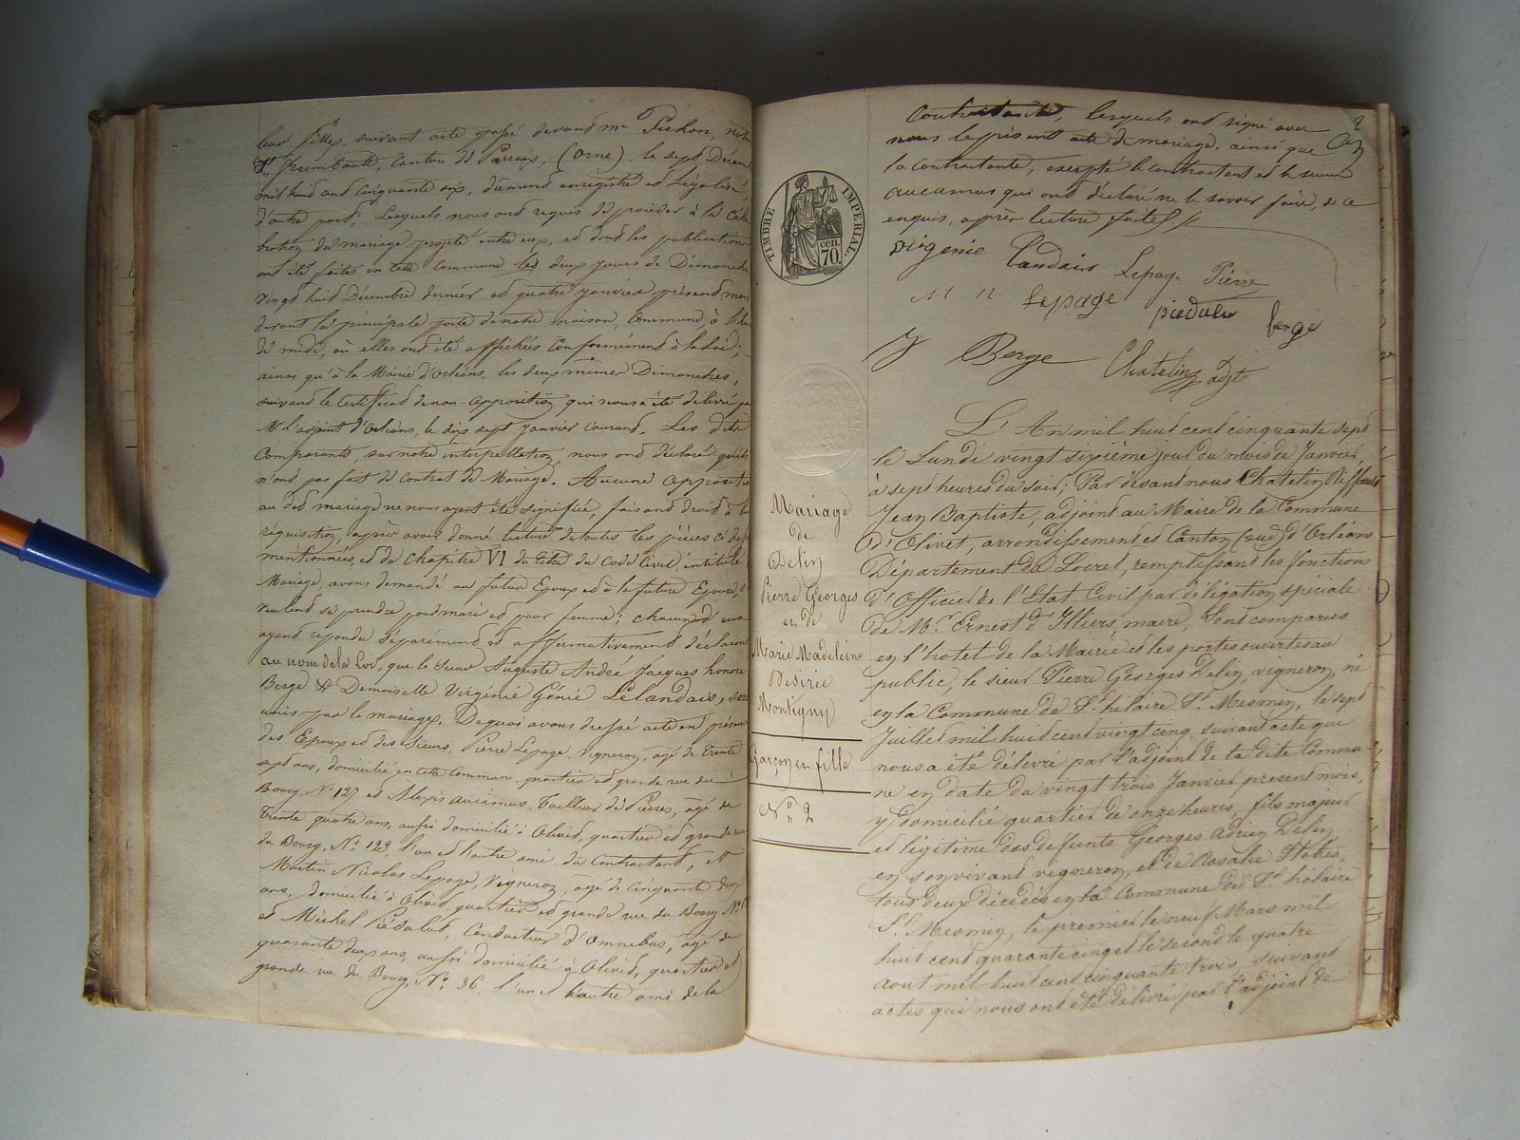 leur fille, suivant acte passé devant Me Pichon,
mil huit cent cinquante six, dûment enregistré et légalisé,
d'autre part. Lesquels nous ont requis de procéder à la
du mariage projeté entre eux, et dont les publications
ont été faites en cette Commune les deux jours de Dimanche
vingt huit Décembre dernier et quatre janvier présent mois
devant la principale porte de notre maison Commune, à
de midi, où elles ont été affichées conformément à la loi ;
ainsi qu'à la Mairie d'Orléans, les deux mêmes Dimanches,
suivant le Certificat de non-opposition qui nous a été délivré par
Mr l'adjoint d'Orléans, le dix sept janvier courant. Les dits
Comparants, sur notre interpellation, nous ont déclaré qu'ils
n'ont pas fait de Contrat de Mariage. Aucune opposition
au dit mariage ne nous ayant été signifiée, faisant droit à la
réquisition, après avoir donné lecture de toutes les pièces ci dessus
mentionnées et du chapitre VI du titre du Code Civil intitulé
Mariage, avons demandé au futur Epoux et à la future Epouse, s'ils
veulent se prendre pour mari et pour femme ; chacun d'eux
ayant répondu séparément et affirmativement déclarons
au nom de la Loi, que le Sieur Auguste André Jacques honoré
Berge & Demoiselle Virginie Génie Lelandais, sont
unis par le mariage. De quoi avons dressé acte en présence
des Epoux et des Sieurs, Pierre Lepage, Vigneron, âgé de Trente
sept ans, domicilié en cette Commune, quartier et grande rue du
Bourg, No 127 et Alexis aucamus, Tailleur de Pierres, âgé de
Trente quatre ans, aussi domicilié à Olivet, quartier et grande rue
du Bourg, No 123, l'un et l'autre ami du Contractant, et
Martin Nicolas Lepage, Vigneron, âgé de cinquante deux
ans, domicilié à Olivet quartier et grande rue du Bourg No
et Michel Piédalut, Conducteur d'Omnibus, âgé de
quarante deux ans, aussi domicilié à Olivet, quartier et
grande rue du Bourg, No 36, l'un et l'autre ami de la
2
Contractante, lesquels ont signé avec
nous le présent acte de mariage, ainsi que
la contractante, excepté le contractant et le sieur
aucamus qui ont déclaré ne le savoir faire, de ce
enquis, après lecture faite
virgenie Landais Lepage Pierre
M N Lepage piedalu berge
Berge Chatelin adjt
TIMBRE IMPÉRIAL
70 CEN.
Mariage
de
Delin
Pierre Georges
et de
Marie Madeleine
Desirée
Montigny
Garçon en fille
No 2
L'An mil huit cent cinquante sept
le Lundi vingt sixième jour du mois de Janvier,
à sept heures du soir ; Par devant nous Chatelin
Jean Baptiste, adjoint au Maire de la Commune
d'Olivet, arrondissement et Canton (sud) d'Orléans
Département du Loiret, remplissant les fonctions
d'Officier de l'Etat Civil par délégation spéciale
de Mr Ernest d'Illiers maire, Sont comparus
en l'hotel de la Mairie et les portes ouvertes au
public, le sieur Pierre Georges Delin vigneron, né
en la Commune de St hilaire St Mesmin, le sept
Juillet mil huit cent vingt cinq, suivant acte que
nous a été délivré par l'adjoint de la dite Commu
ne en date du vingt trois Janvier présent mois,
y domicilié quartier de onze heures, fils majeur
et légitime des défunts Georges Adrien Delin
en son vivant vigneron, et de Rosalie
tous deux décédés en la Commune de St hilaire
St Mesmin, le premier le neuf Mars mil
huit cent quarante cinq et le second le quatre
aout mil huit cent cinquante trois, suivant
actes qui nous ont été délivré par l'adjoint de